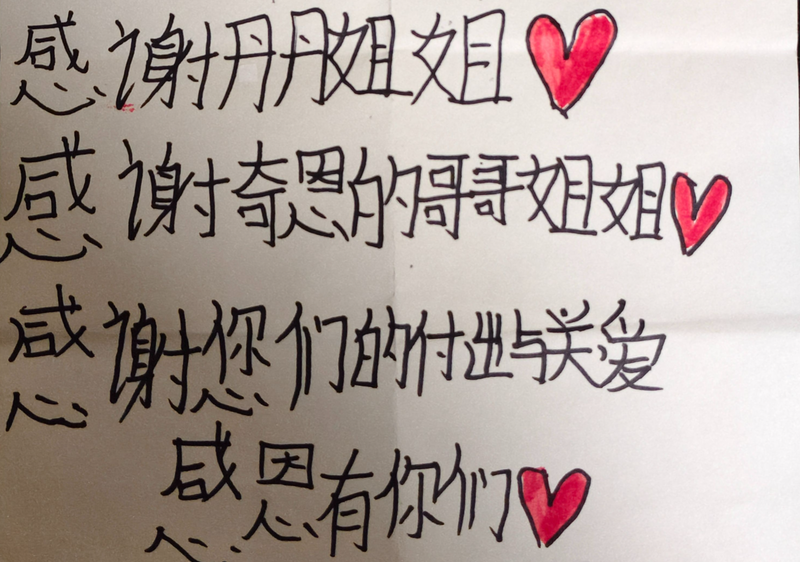 感谢丹丹姐姐
感谢奇恩的哥哥姐姐
感谢您们的付出与关爱
感恩有你们